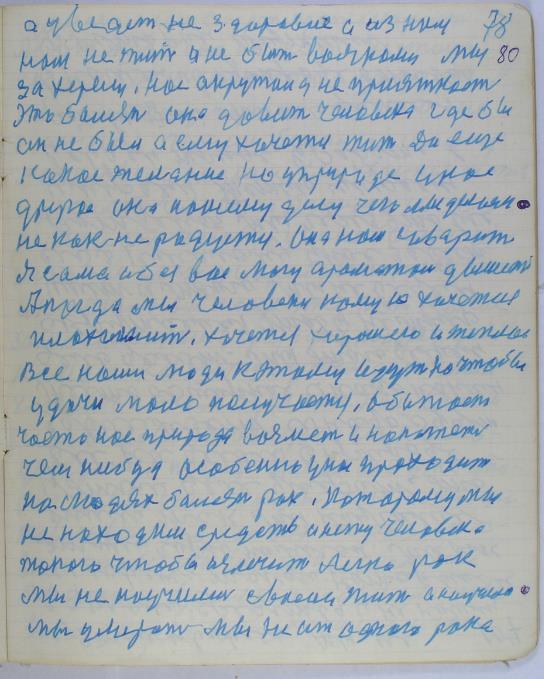 а уведет не здоровие а из ним 78
нам не жит а не быт вояками мы 80
за херели. нас окружает неприятност
Эта болезн она давит человека где бы
он не был а ему хочется жит Да еще
какое желание Но у природе иное
другое она нашему делу чем людским
не как не радуется. Она нам говарит
я сама и без вас могу ароматом дышет
А тогда мы человеки кому ю хочется
плохо жит. хочется харошего и теплае
Все наши люди к этому идут но чтобы
удачи мало получается, а бытност
часто нас природа возмет и накажет
чем нибуд особенно у нас проходит
на людях балезн рак. Потаромумы
не находим средств и нету человека
такого чтобы излечит легко рак
мы не научилис своем жит а научилис
мы умерат мы не ат одного рака